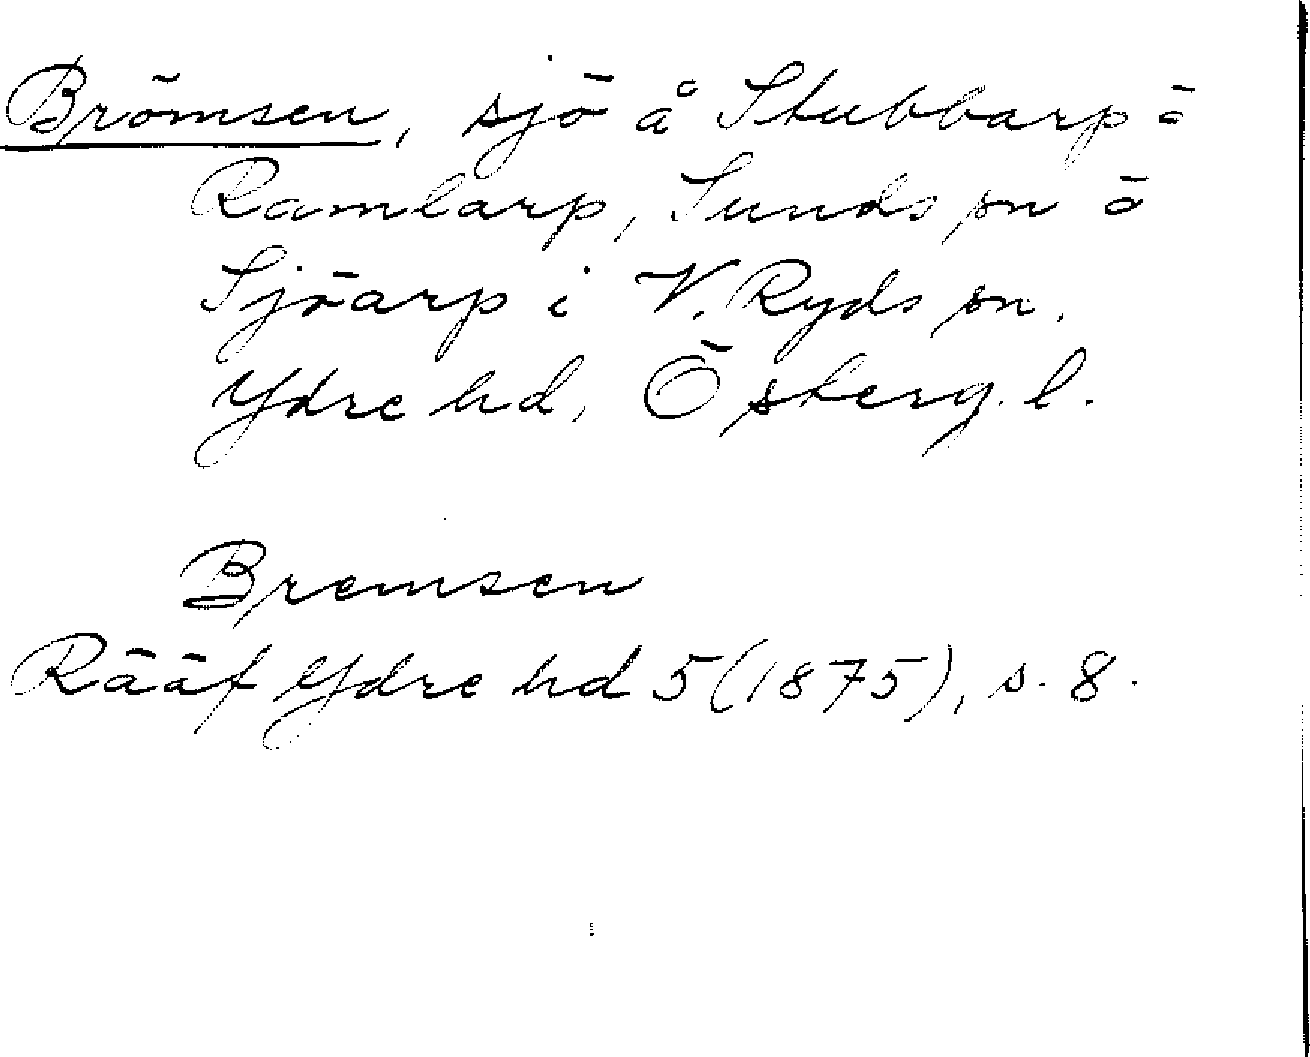 Brömsen, sjö å Stubbarp o
Ramlarp, Sunds sn o
Sjöarp i V. Ryds sn.
Ydre hd, Östergl.
Bremsen
Rääf Ydre hd 5 (1875), s. 8.